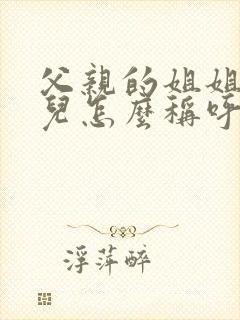 父親的姐姐
兒怎麼稱呼
浮萍醉